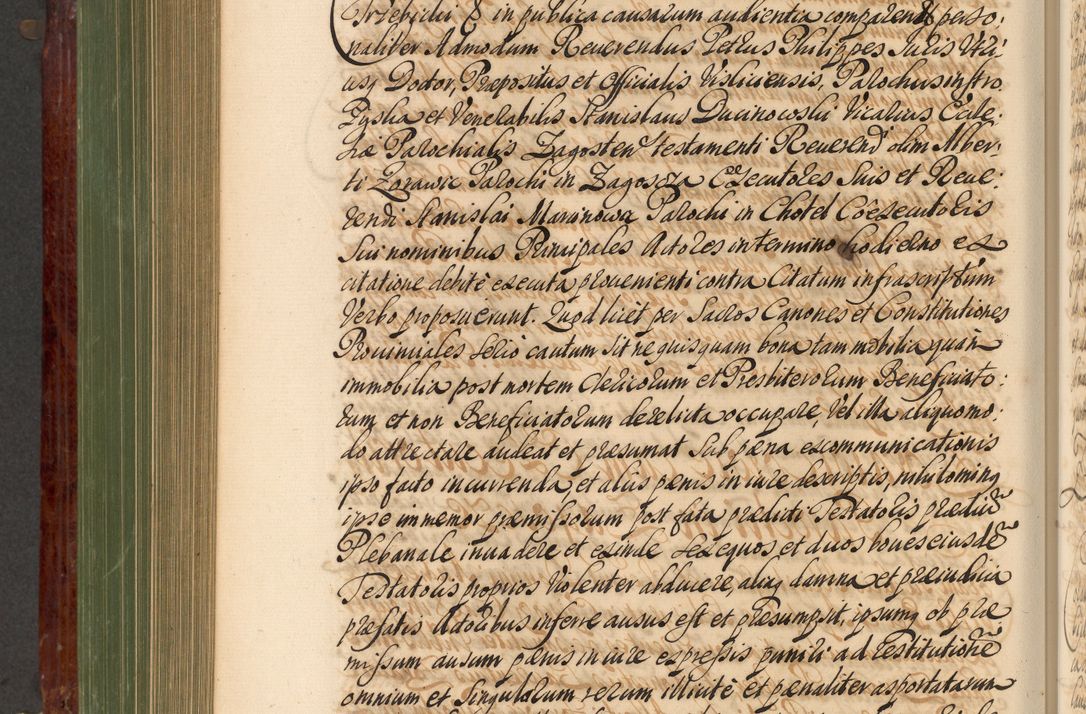 Trzebicki & in publica causarum audientia comparend perso:
naliter Admodum Reuerendus Petrus Philippes Juris Utri
usq Doctor, Præpositus et Officialis Visliciensis, Parochus in
Pyslia et Venerabilis Stanislaus Ducinowski Vicarius Eccle:
siæ Parochialis Zagosten testamenti Reuerend olim Alber:
ti Zorawic Parochi in Zagoscza Coexecutores Suis et Reue:
rendi Stanislai Marinowa Parochi in Chotel Coexecutoris
Sui nominibus Principales Actores in termino hodierno ex
citatione debite executa prouenienti contra Citatum infrascriptum
Verbo proposuerunt. Quod licet per Sacros Canones et Constitutiones
Prouinciales serio cautum sit ne quisquam bona tam mobilia quam
immobilia post mortem Clericorum et Presbiterorum Beneficiato:
rum et non Beneficiatorum derelicta occupare, Vel illa aliquomo:
do attrectare audeat et præsumat Sub pæna excommunicationis
ipso facto incurrenda, et aliis pænis in iure descriptis, nihilominq
ipse immemor præmissorum post fata prædicti Testatoris prædiu
Plebanale inuadere et exinde sex equos, et duos boues eiusde
Testatoris proprios Violenter abducere, aliaq damna et præiudicia
præfatis Actoribus inferre ausus est et præsumpsit, ipsumq ob præ
missum ausum pænis in iure expressis puniri ad restitutione
omnium et Singulorum rerum illicite et pænaliter asportatarum